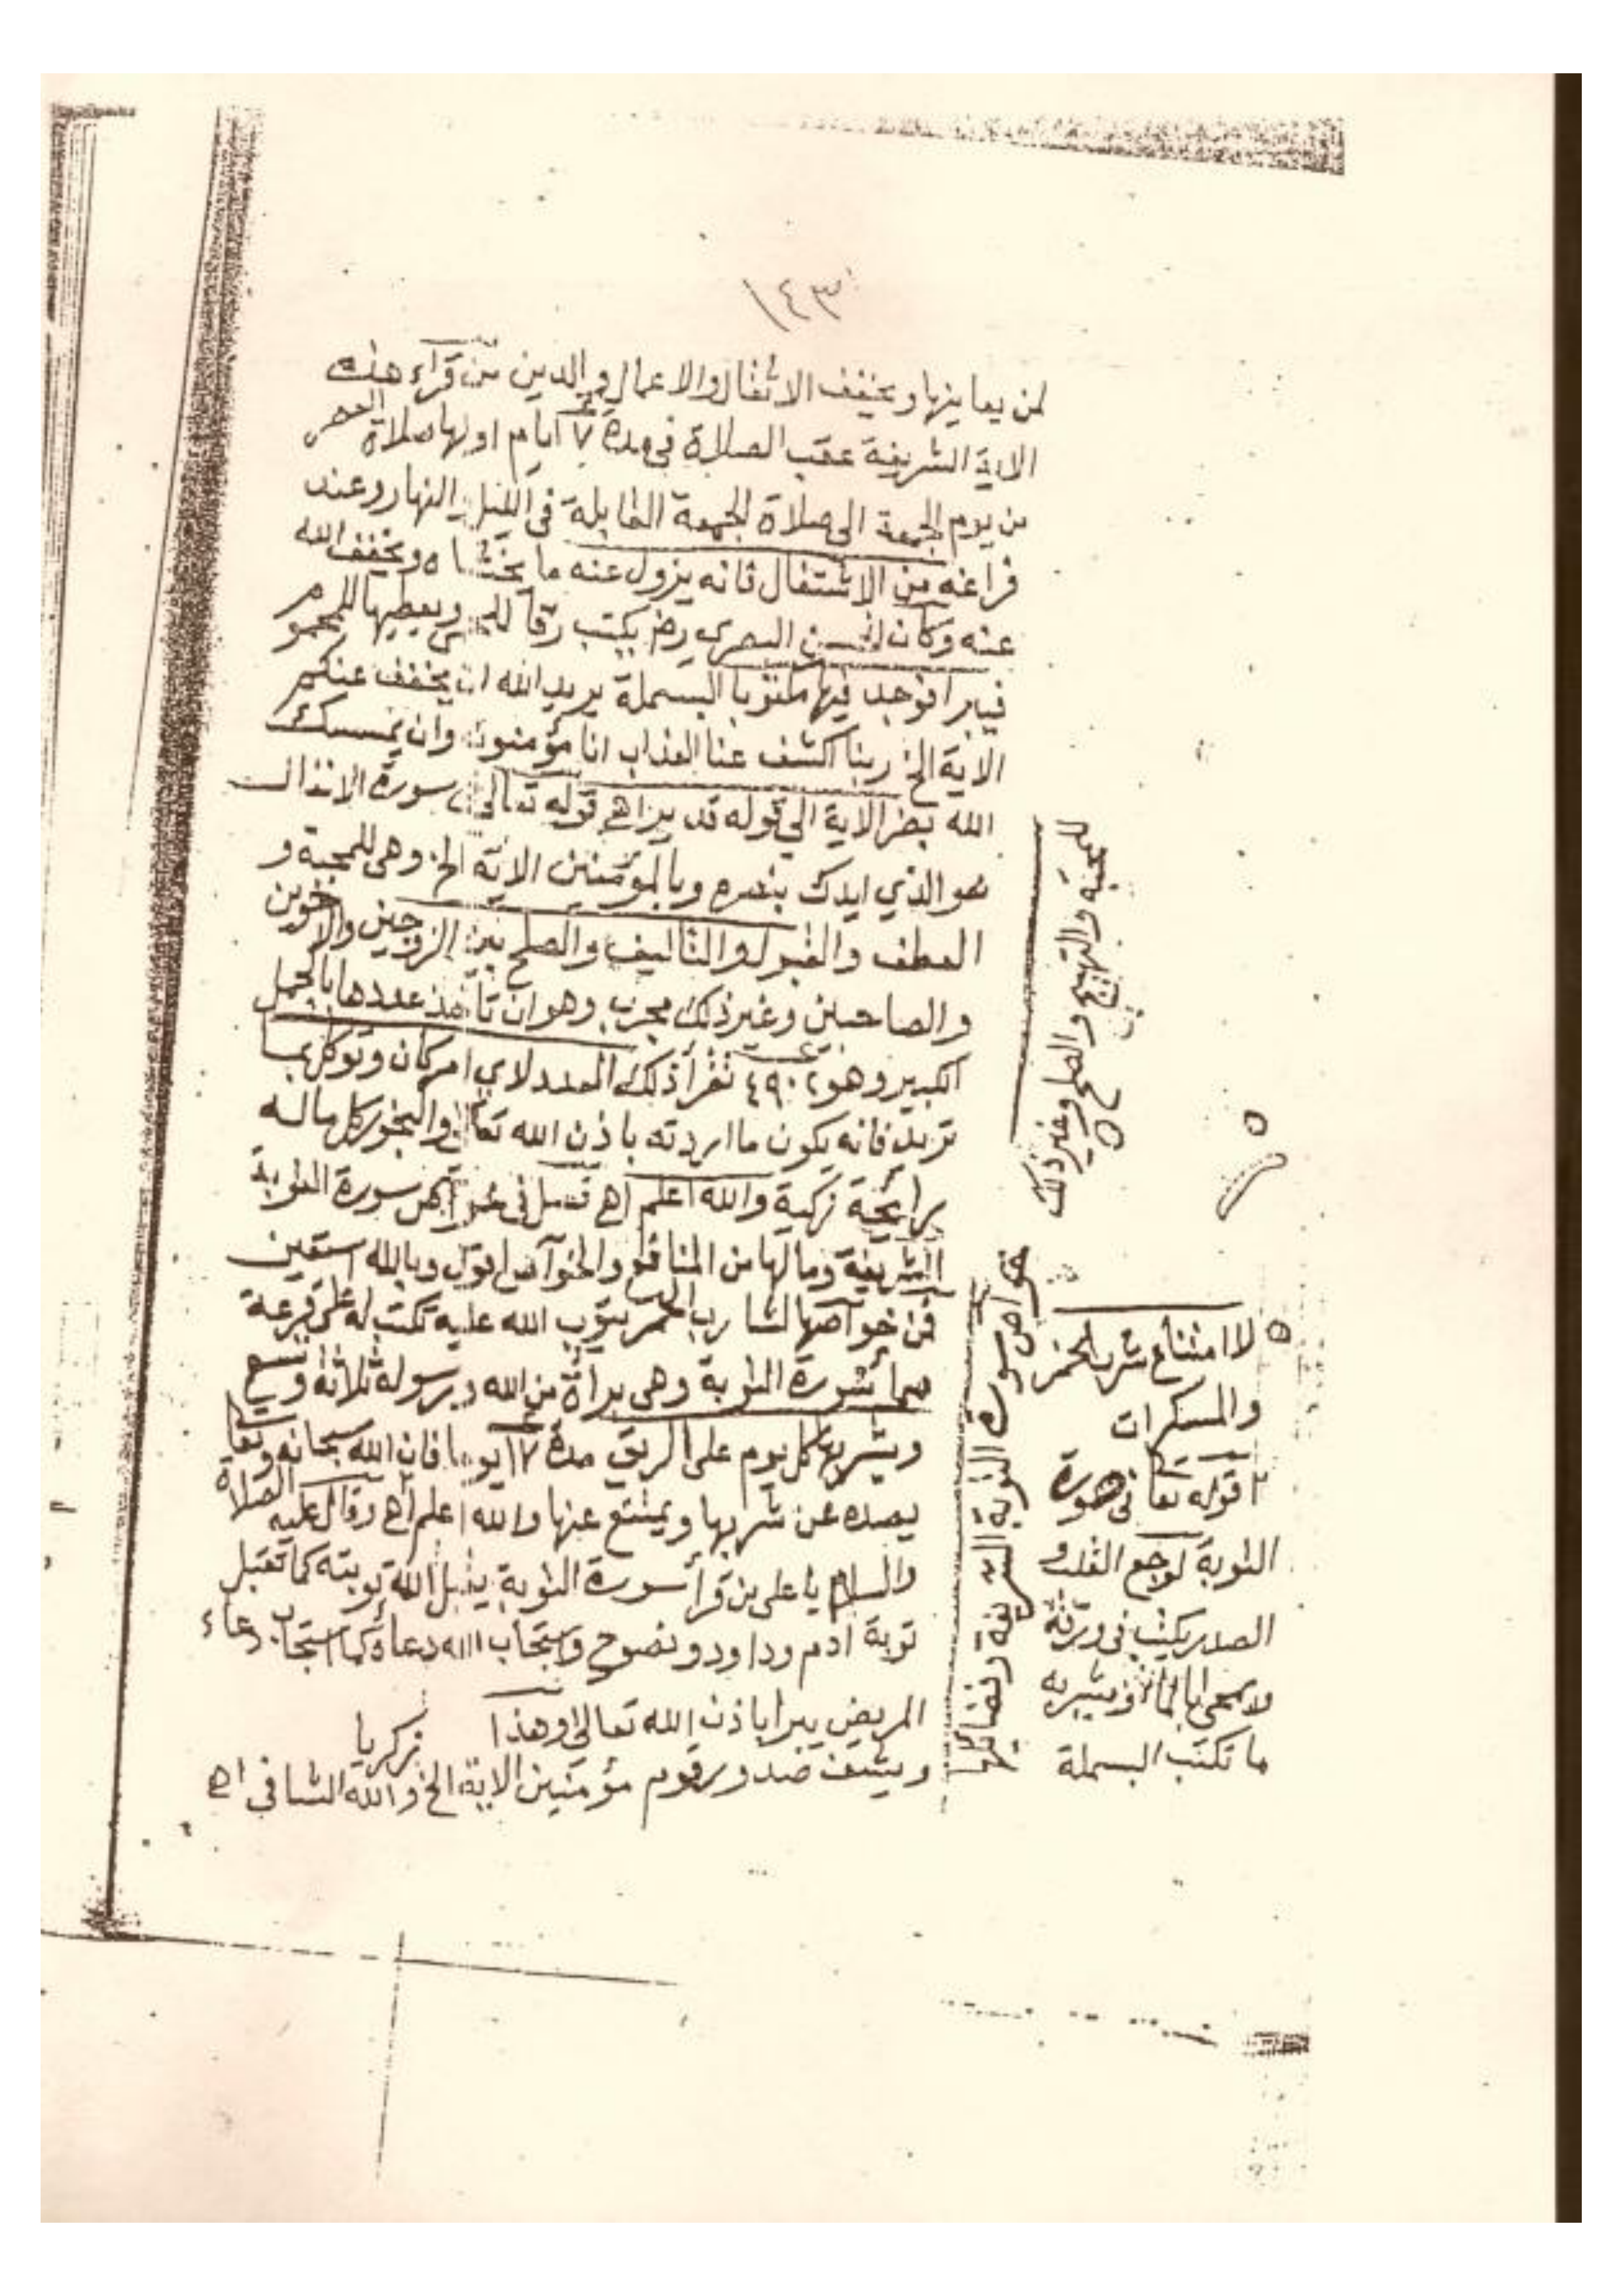 ١٤٣
لمن يعاينها ويخفف الاثقال والاعمال والدين من قرآء هذه
الاية الشريفة عقب الصلاة في مدة ٧ ايام اولها صلاة العصر
من يوم الجمعة الى صلاة الجمعة القابلة في الليل والنهار وعند
فراغه من الاشتغال فانه يزول عنه ما يخشاه ويخفف الله
عنه وكان الحسن البصري رضي يكتب رقا للحمى ويعطيها للمحموم
فيبرا فوجد فيها مكتوبا البسملة يريد الله ان يخفف عنكم
الاية الخ ربنا اكشف عنا العذاب انا مؤمنون وان يمسسك
الله بضر الاية الى قوله قدير اهـ قوله تعالى سورة الانفال
هو الذي ايدك بنصره وبالمؤمنين الاية الخ وهي للمحبة و
العطف والقبول والتاليف والصلح بين الزوجين والاخوين
والصاحبين وغير ذلك مجرب وهو ان تأخذ عددها بالجمل
الكبير وهو ٤٩٠٢ تقرأ ذلك العدد لاي امر كان وتوكل بما
تريد فانه يكون ما اردته باذن الله تعالى والبخور كل ماله
رايحة زكية والله اعلم اهـ فصل في خواص سورة التوبة
الشريفة وما لها من المنافع والخوآص اقول وبالله استعين
فمن خوآصها لشارب الخمر يتوب الله عليه تكتب له على قرعة
سورة التوبة وهي برأة من الله ورسوله ثلاثة وتسع
ويشربها كل يوم على الريق مدة ١٧ يوما فان الله سبحانه وتعالى
يصده عن شربها ويمتنع عنها والله اعلم اهـ وقال عليه الصلاة
والسلام يا علي من قرأ سورة التوبة يقبل الله توبته كما تقبل
توبة ادم وداود ونصوح واستجاب الله دعاه كما استجاب دعاء
زكريا
المريض يبرا باذن الله تعالى وهذا
ويشف صدور قوم مؤمنين الاية الخ والله الشافي اهـ
للمحبة والتهييج والصلح وغير ذلك
خواص سورة التوبة الشريفة وفضائلها
لا امتناع شرب الخمر
والمسكرات
قوله تعا في سورة
التوبة لوجع القلب و
الصدر يكتب في ورقة
ويمحى بالماء ويشربه
ما تكتب البسملة